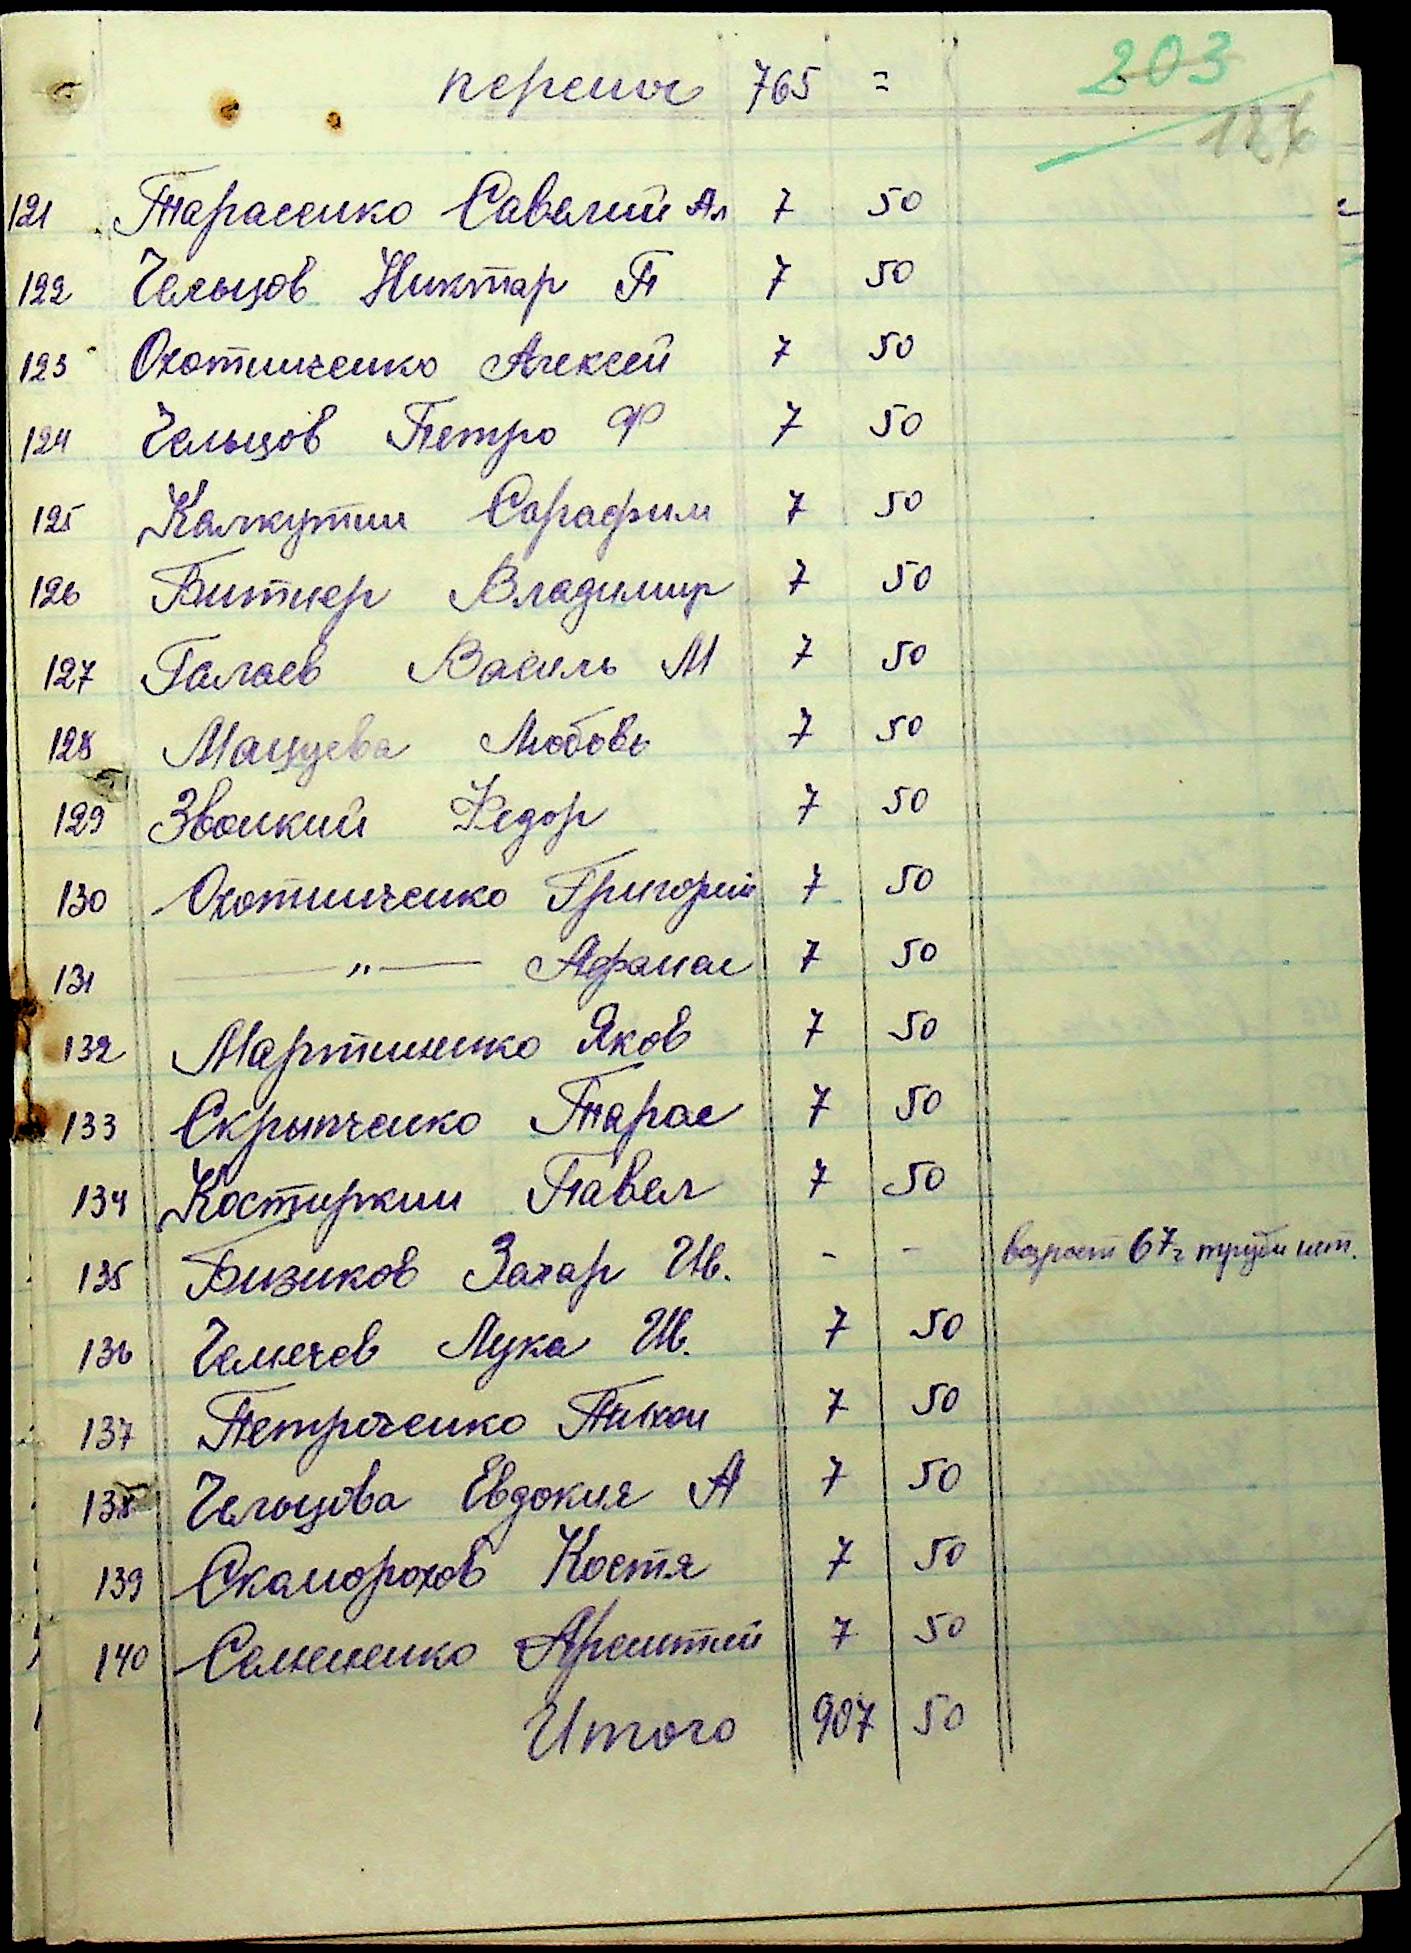 203
перенос 765 =
126
121 Тарасенко Савелий Ал 7 50
122 Чельцов Никтар П 7 50
123 Охотниченко Алексей 7 50
124 Чельцов Петро Ф 7 50
125 Калкутин Сарафим 7 50
126 Битнер Владимир 7 50
127 Галаев Василь М 7 50
128 Мацуева Любовь 7 50
129 Звонкий Федор 7 50
130 Охотниченко Григорий 7 50
131 — " — Афанас 7 50
132 Мартиненко Яков 7 50
133 Скрыпченко Тарас 7 50
134 Костиркин Павел 7 50
135 Бизиков Захар Ив. - - возраст 67 г трудн нет.
136 Челючев Лука Ив. 7 50
137 Петроченко Тихон 7 50
138 Чельцова Евдокия А 7 50
139 Скаморохов Костя 7 50
140 Семененко Арентий 7 50
Итого 907 50